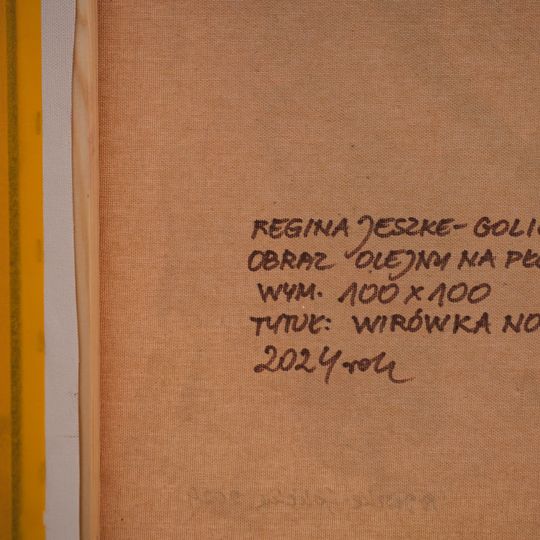 REGINA JESZKE-GOLI
OBRAZ OLEJNY NA PŁ
WYM. 100 X 100
TYTUŁ: WIRÓWKA NO
2024 rok